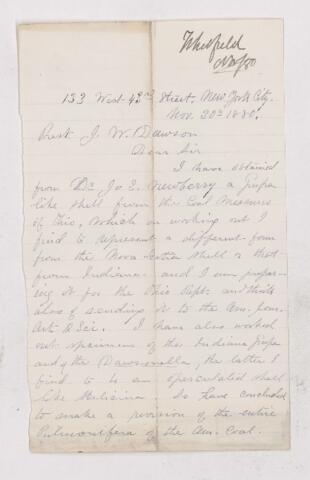 Whitfield
Nov 30
133 West 43rd Street, New York City.
Nov. 30th 1880.
Prest J. W. Dawson
Dear Sir
I have obtained
from Dr. J. S. Newberry a Pupa
like shell from the Coal Measures
of Ohio, which on working out I
find to represent a different form
from the Nova Scotia shell & that
from Indiana and I am prepar-
ing it for the Ohio Rept. and think
also of sending it to the Am. Jour.
Art & Sci. I have also worked
out specimens of the Indiana Pupa
and of the Dawsonella, the latter I
find to be an operculated shell
like Helicina so have concluded
to make a revision of the entire
Pulmonifera of the Am. Coal.